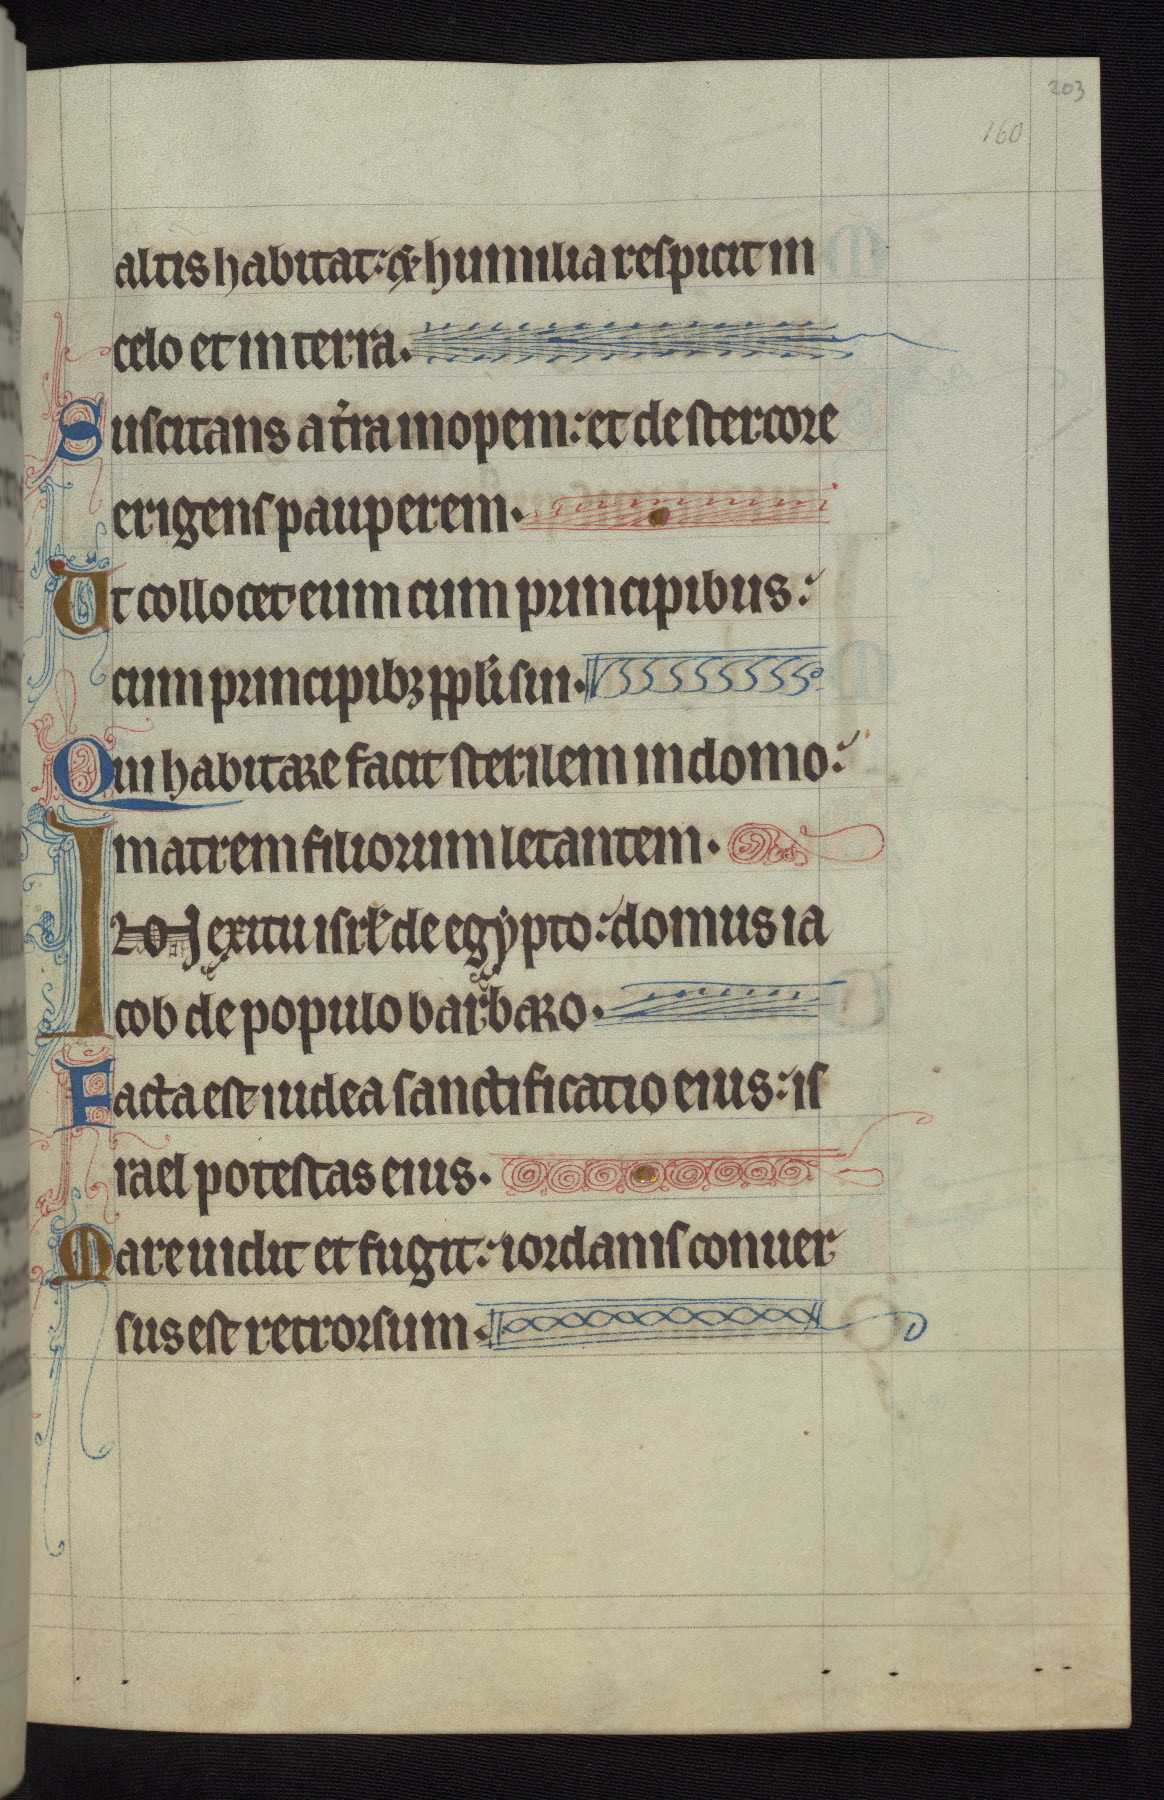 203
160
altis habitat: & humilia respicit in
celo et in terra.
Suscitans a t̄ra inopem: et de stercore
erigens pauperem.
Ut collocet eum cum principibus:
cum principibꝫ ppłi sui.
Qui habitare facit sterilem in domo:
matrem filiorum letantem.
In exitu isrł de egẏpto: domus ia
cob de populo barbaro.
Facta est iudea sanctificatio eius: is
rael potestas eius.
Mare uidit et fugit: iordanis conuer
sus est retrorsum.